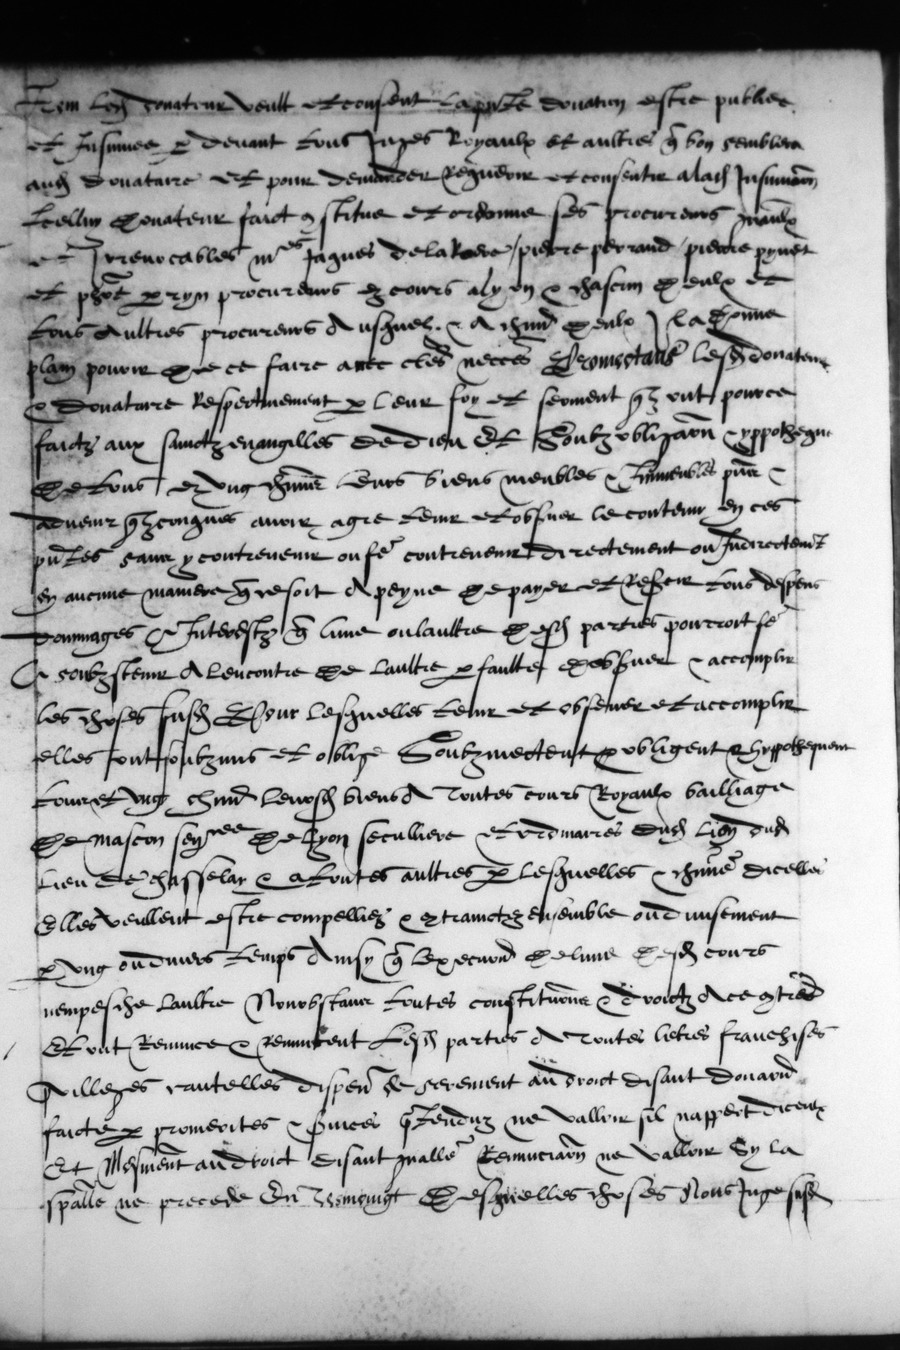 Item led donateur veult et consent la pnte donation estre publiee
et Insinuee p devant tous Juges Royaulx et aultres q bon semblera
aud donataire et pour demander Requerir et consentir alad Insinuaon
Icelluy donateur faict 9stitue et ordonne ses procureurs gnaulx
et Irrevocables mes Jaques dela pierre perrand pierre
et procureurs es cours a lyon & chascun deulx et
tous aultres procureurs Ausquelz & A chun deulx Il a donne
plain povoir de ce faire avec cles necces Promectans lesd donateur
& donataire Respectivement p leur foy et serment qlz ont pource
faictz aux sainctz evangilles de dieu Et Soubz obligaon & yppotheque
de tous et ung chune leurs biens meubles & Immeubles pns &
advenir qlzconques avoir agre tenir et observer le contenu en ces
pntes sans y contrevenir ou fe contrevenir directement ou Indirectemt
en aucune maniere q ce soit A peyne de payer et Reffair tous despens
dommages & Interestz q lune ou laultre desd parties pourroit fe
& soubzstenir A lencontre de laultre p faulte dobsever & accomplir
les choses susd Pour lesquelles tenir et observer et accomplir
elles ont soubzmis et oblige Soubzmectent & obligent & hyppothequent
tous et ung chun leursd biens A Toutes cours Royaulx bailliage
de mascon senee de lyon seculliere et ordinaires dud lion dud
lieu de chasselay & a toutes aultres p lesquelles & chune dicelles
Elles veullent estre compelliez & contrainctz ensemble ou divisement
p ung ou divers temps Ainsy q lexecuon de lune desd cours
nempesche laultre Nonobstant toutes constituons & droictz A ce 9tres
Et ont Renunce & renuncent lesd parties A Toutes lectres franchises
Privilleges cautelles dispen de serement au droict disant donaon
faicte p ne valloir sil nappert diceulx
Et Mesment au droict disant gnalle Renunciaon ne valloir Sy la
spalle ne precede En Tesmoingt Desquelles choses Nous Juge susd